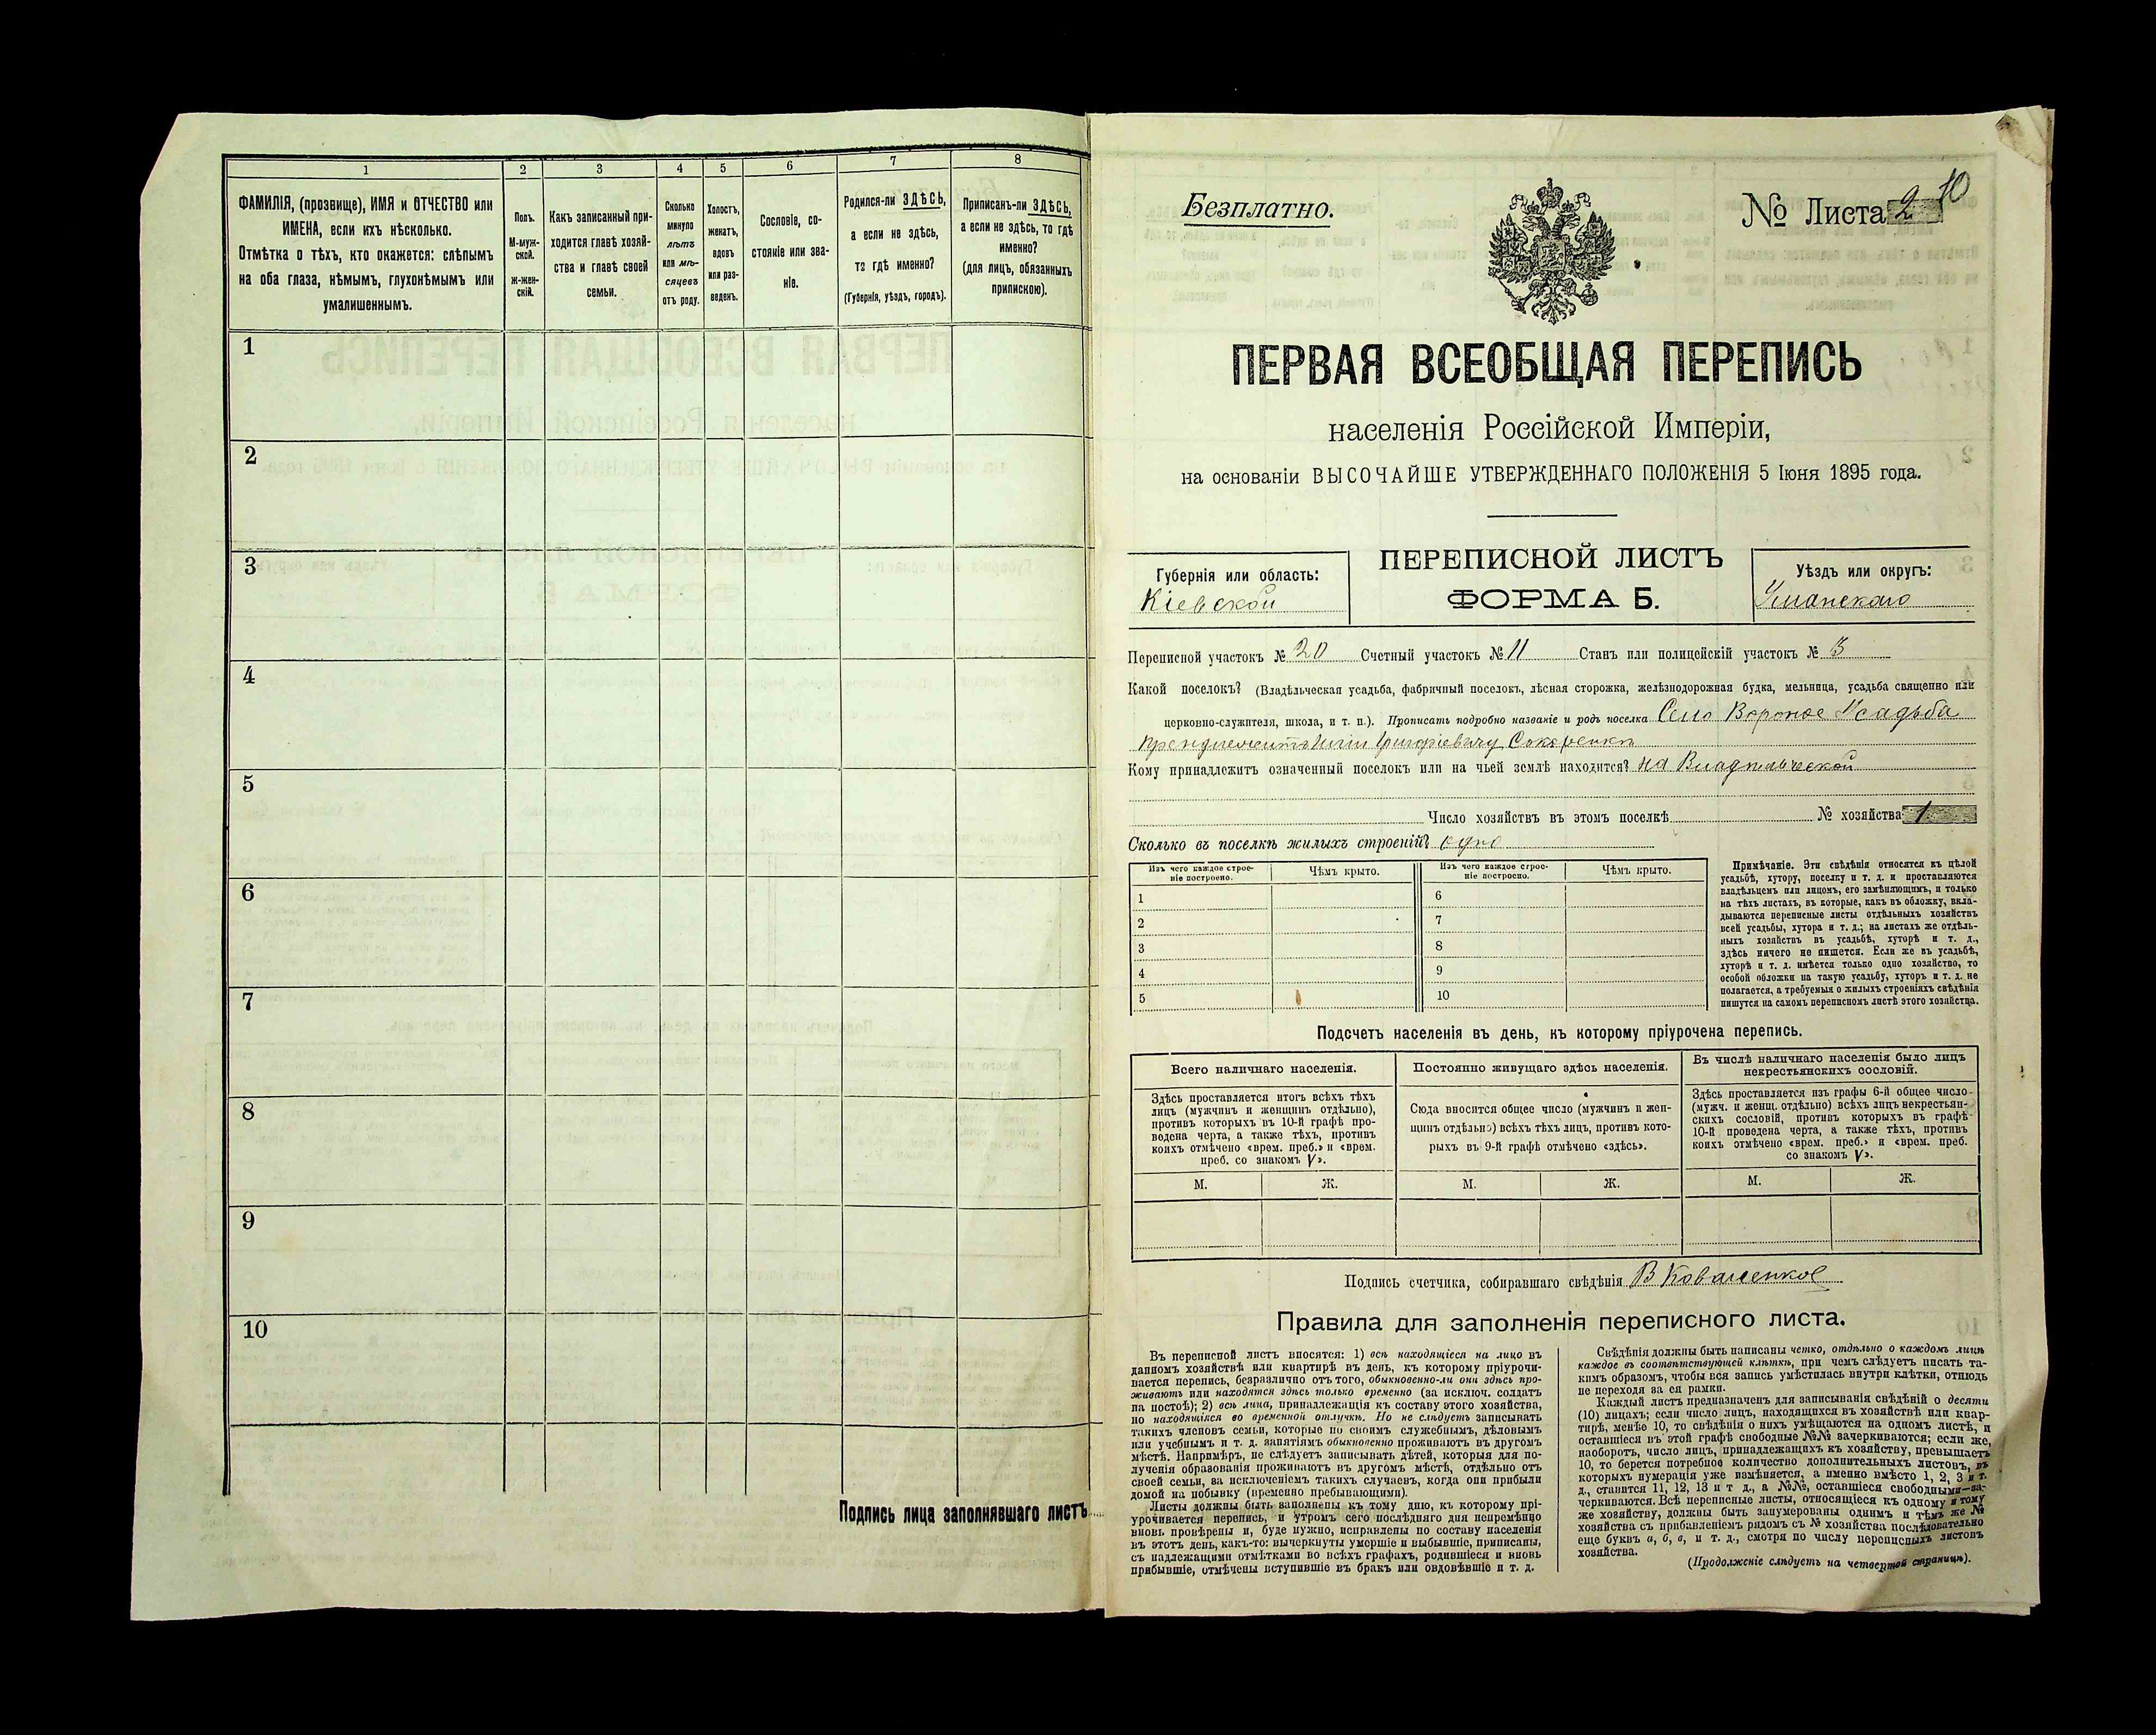 1
2
3
4
5
6
7
8
ФАМИЛІЯ, (прозвище), ИМЯ и ОТЧЕСТВО или
ИМЕНА, если ихъ нѣсколько.
Отмѣтка о тѣхъ, кто окажется: слѣпымъ
на оба глаза, нѣмымъ, глухонѣмымъ или
умалишеннымъ.
Полъ.
М-муж-
ской.
ж-жен-
скій.
Какъ записанный при-
ходится главѣ хозяй-
ства и главѣ своей
семьи.
Сколько
минуло
лѣтъ
или мѣ-
сяцевъ
отъ роду.
Холостъ,
женатъ,
вдовъ
или раз-
веденъ.
Сословіе, со-
стояніе или зва-
ніе.
Родился-ли ЗДѢСЬ,
а если не здѣсь,
то гдѣ именно?
(Губернія, уѣздъ, городъ).
Приписанъ-ли ЗДѢСЬ,
а если не здѣсь, то гдѣ
именно?
(для лицъ, обязанныхъ
припискою).
1
2
3
4
5
6
7
8
9
10
Подпись лица заполнявшаго листъ
Безплатно.
№ Листа 2 10
ПЕРВАЯ ВСЕОБЩАЯ ПЕРЕПИСЬ
населенія Россійской Имперіи,
на основаніи ВЫСОЧАЙШЕ УТВЕРЖДЕННАГО ПОЛОЖЕНІЯ 5 Іюня 1895 года.
Губернія или область:
Кіевской
ПЕРЕПИСНОЙ ЛИСТЪ
ФОРМА Б.
Уѣздъ или округъ:
Уманскаго
Переписной участокъ № 20 Счетный участокъ № 11 Станъ или полицейскій участокъ № 3
Какой поселокъ? (Владѣльческая усадьба, фабричный поселокъ, лѣсная сторожка, желѣзнодорожная будка, мельница, усадьба священно или
церковно-служителя, школа, и т. п.). Прописать подробно названіе и родъ поселка Село Вороное Усадьба
Григорiевичу
Кому принадлежитъ означенный поселокъ или на чьей землѣ находится? на Владѣльческой
Число хозяйствъ въ этомъ поселкѣ № хозяйства 1
Сколько въ поселкѣ жилыхъ строеній? одно
Изъ чего каждое строе-
ніе построено.
Чѣмъ крыто.
Изъ чего каждое строе-
ніе построено.
Чѣмъ крыто.
1
2
3
4
5
6
7
8
9
10
Примѣчаніе. Эти свѣдѣнія относятся къ цѣлой
усадьбѣ, хутору, поселку и т. д. и проставляются
владѣльцемъ или лицомъ, его замѣняющимъ, и только
на тѣхъ листахъ, въ которые, какъ въ обложку, вкла-
дываются переписные листы отдѣльныхъ хозяйствъ
всей усадьбы, хутора и т. д.; на листахъ же отдѣль-
ныхъ хозяйствъ въ усадьбѣ, хуторѣ и т. д.,
здѣсь ничего не пишется. Если же въ усадьбѣ,
хуторѣ и т. д. имѣется только одно хозяйство, то
особой обложки на такую усадьбу, хуторъ и т. д. не
полагается, а требуемыя о жилыхъ строеніяхъ свѣдѣнія
пишутся на самомъ переписномъ листѣ этого хозяйства.
Подсчетъ населенія въ день, къ которому пріурочена перепись.
Всего наличнаго населенія.
Здѣсь проставляется итогъ всѣхъ тѣхъ
лицъ (мужчинъ и женщинъ отдѣльно),
противъ которыхъ въ 10-й графѣ про-
ведена черта, а также тѣхъ, противъ
коихъ отмѣчено «врем. преб.» и «врем.
преб. со знакомъ V».
М.
Ж.
Постоянно живущаго здѣсь населенія.
Сюда вносится общее число (мужчинъ и жен-
щинъ отдѣльно) всѣхъ тѣхъ лицъ, противъ кото-
рыхъ въ 9-й графѣ отмѣчено «здѣсь».
М.
Ж.
Въ числѣ наличнаго населенія было лицъ
некрестьянскихъ сословій.
Здѣсь проставляется изъ графы 6-й общее число
(мужч. и женщ. отдѣльно) всѣхъ лицъ некрестьян-
скихъ сословій, противъ которыхъ въ графѣ
10-й проведена черта, а также тѣхъ, противъ
коихъ отмѣчено «врем. преб.» и «врем. преб.
со знакомъ V».
М.
Ж.
Подпись счетчика, собиравшаго свѣдѣнія В Коваленков
Правила для заполненія переписного листа.
Въ переписной листъ вносятся: 1) всѣ находящіеся на лицо въ
данномъ хозяйствѣ или квартирѣ въ день, къ которому пріурочи-
вается перепись, безразлично отъ того, обыкновенно-ли они здѣсь про-
живаютъ или находятся здѣсь только временно (за исключ. солдатъ
на постоѣ); 2) всѣ лица, принадлежащія къ составу этого хозяйства,
но находящіяся во временной отлучкѣ. Но не слѣдуетъ записывать
такихъ членовъ семьи, которые по своимъ служебнымъ, дѣловымъ
или учебнымъ и т. д. занятіямъ обыкновенно проживаютъ въ другомъ
мѣстѣ. Напримѣръ, не слѣдуетъ записывать дѣтей, которыя для по-
лученія образованія проживаютъ въ другомъ мѣстѣ, отдѣльно отъ
своей семьи, за исключеніемъ такихъ случаевъ, когда они прибыли
домой на побывку (временно пребывающими).
Листы должны быть заполнены къ тому дню, къ которому прі-
урочивается перепись, и утромъ сего послѣдняго дня непремѣнно
вновь провѣрены и, буде нужно, исправлены по составу населенія
въ этотъ день, какъ-то: вычеркнуты умершіе и выбывшіе, приписаны,
съ надлежащими отмѣтками во всѣхъ графахъ, родившіеся и вновь
прибывшіе, отмѣчены вступившіе въ бракъ или овдовѣвшіе и т. д.
Свѣдѣнія должны быть написаны четко, отдѣльно о каждомъ лицѣ
каждое въ соотвѣтствующей клѣткѣ, при чемъ слѣдуетъ писать та-
кимъ образомъ, чтобы вся запись умѣстилась внутри клѣтки, отнюдь
не переходя за ея рамки.
Каждый листъ предназначенъ для записыванія свѣдѣній о десяти
(10) лицахъ; если число лицъ, находящихся въ хозяйствѣ или квар-
тирѣ, менѣе 10, то свѣдѣнія о нихъ умѣщаются на одномъ листѣ, и
оставшіеся въ этой графѣ свободные №№ зачеркиваются; если же,
наоборотъ, число лицъ, принадлежащихъ къ хозяйству, превышаетъ
10, то берется потребное количество дополнительныхъ листовъ, въ
которыхъ нумерація уже измѣняется, а именно вмѣсто 1, 2, 3 и т.
д., ставится 11, 12, 13 и т д., а №№, оставшіеся свободными—за-
черкиваются. Всѣ переписные листы, относящіеся къ одному и тому
же хозяйству, должны быть занумерованы однимъ и тѣмъ же №
хозяйства съ прибавленіемъ рядомъ съ № хозяйства послѣдовательно
еще буквъ а, б, в, и т. д., смотря по числу переписныхъ листовъ
хозяйства.
(Продолженіе слѣдуетъ на четвертой страницѣ).